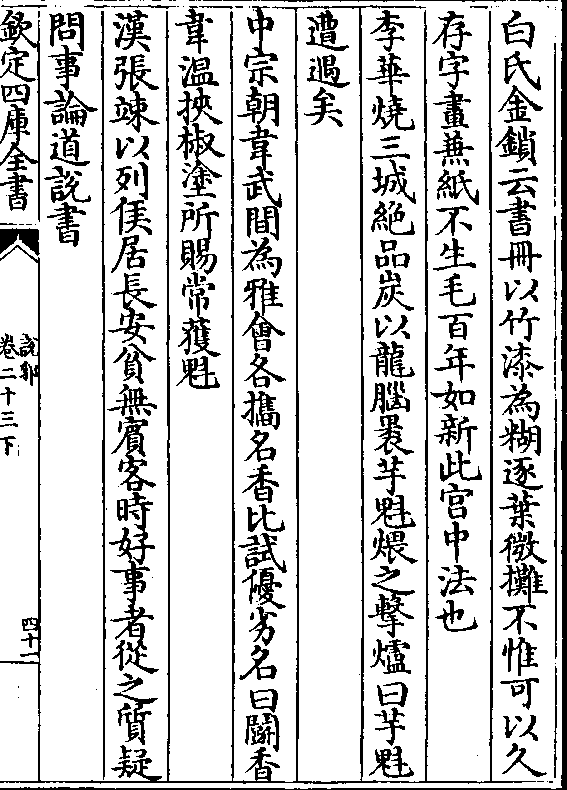 白氏金鎖云書冊以竹漆為糊逐葉微攤不惟可以久
存字畫兼紙不生毛百年如新此宫中法也
李華燒三城絶品炭以龍腦裹芋魁煨之擊爐曰芋魁
遭遇矣
中宗朝韋武間為雅會各攜名香比試優劣名曰鬭香
韋溫挾椒塗所賜常獲魁
漢張竦以列侯居長安貧無賓客時好事者從之質疑
問事論道說書
欽定四庫全書
說郛
卷二十三下
四十一